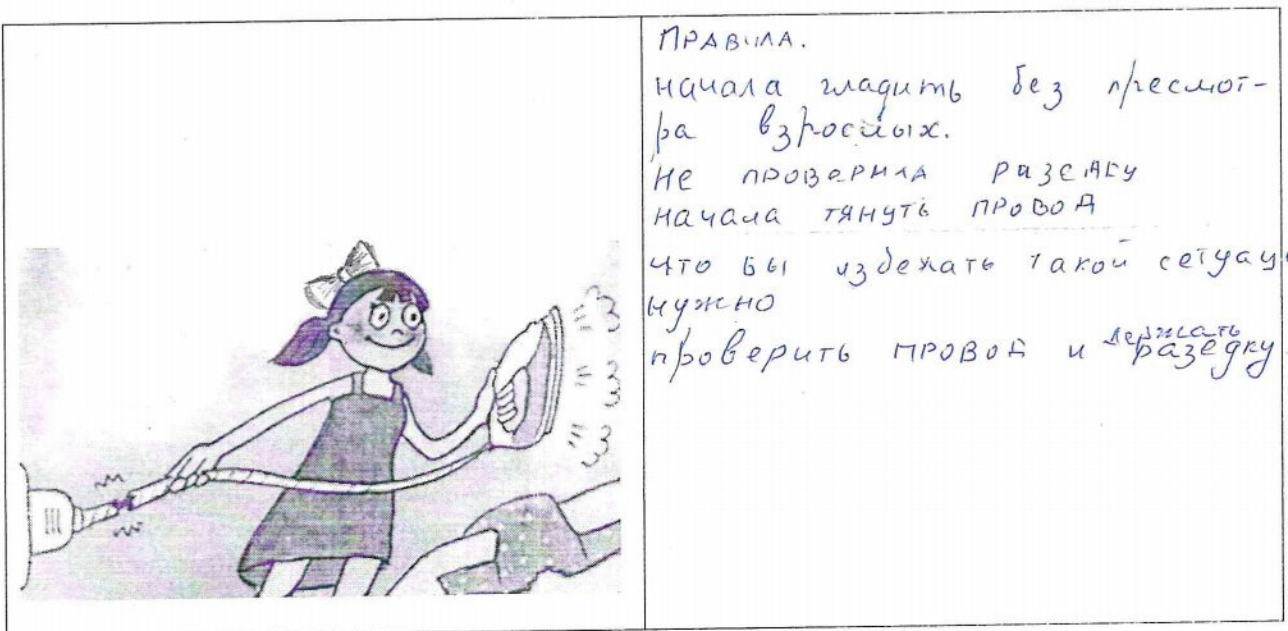 Правила.
начала гладить без пресмот-
ра взрослых.
не проверила разедку
начала тянуть провод
что бы избежать такой сетуац
нужно
проверить провод и держать разедку